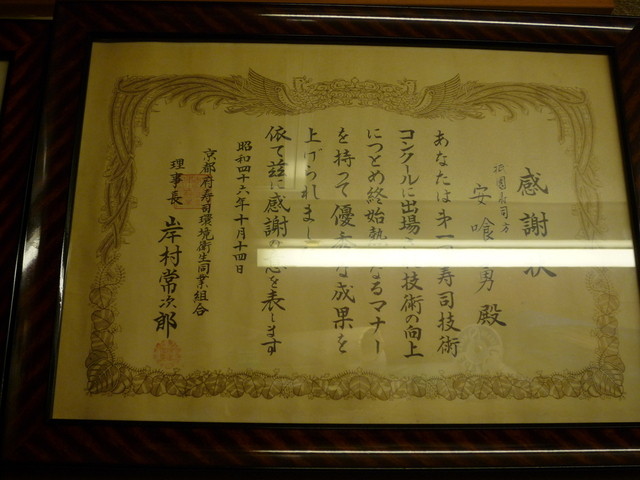 感謝状
祇園寿司方
安喰勇殿
あなたは才一 寿司技術
コンクールに出場 技術の向上
につとめ終始 なるマナー
を持って優秀な成果を
上げられまし
依て茲に感謝 意を表します
昭和四十六年十月十四日
京都府寿司環境衛生同業組合
理事長 岸村常次郎